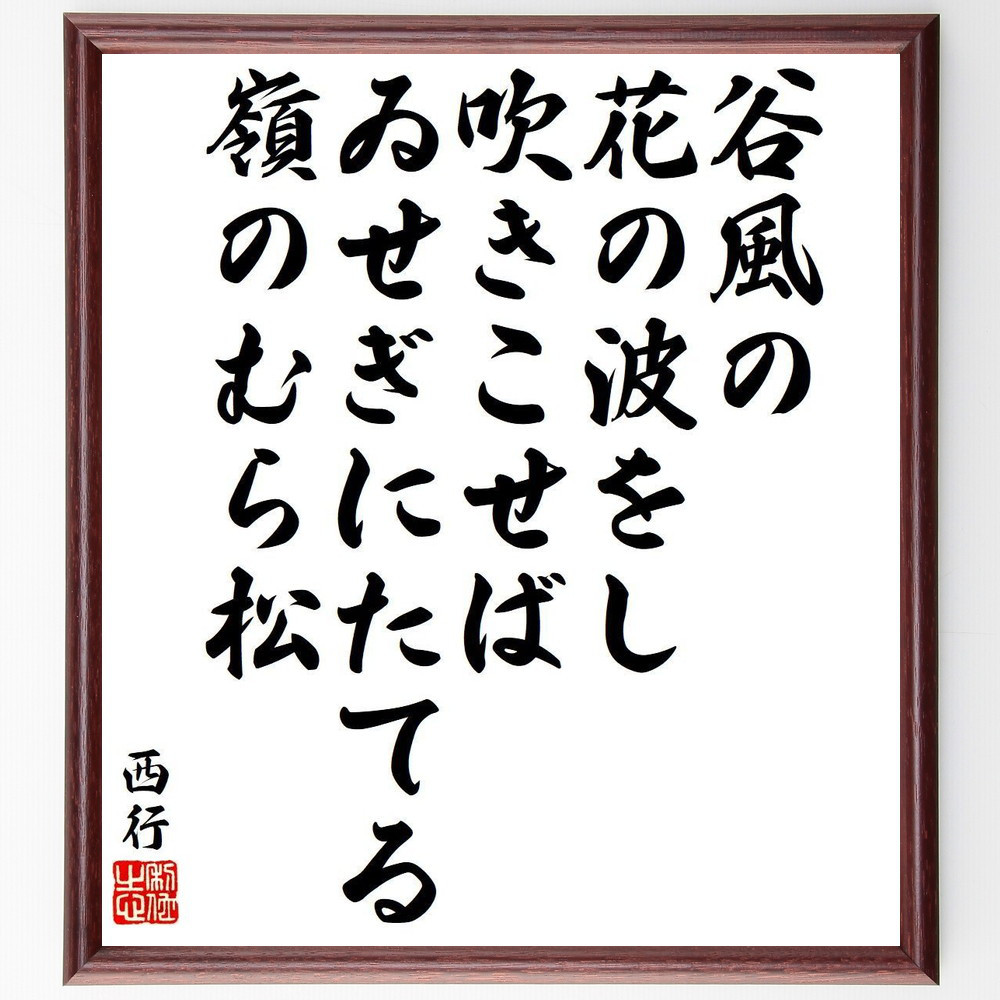 谷風の
花の波をし
吹きこせば
ゐせぎにたてる
嶺のむら松
西行